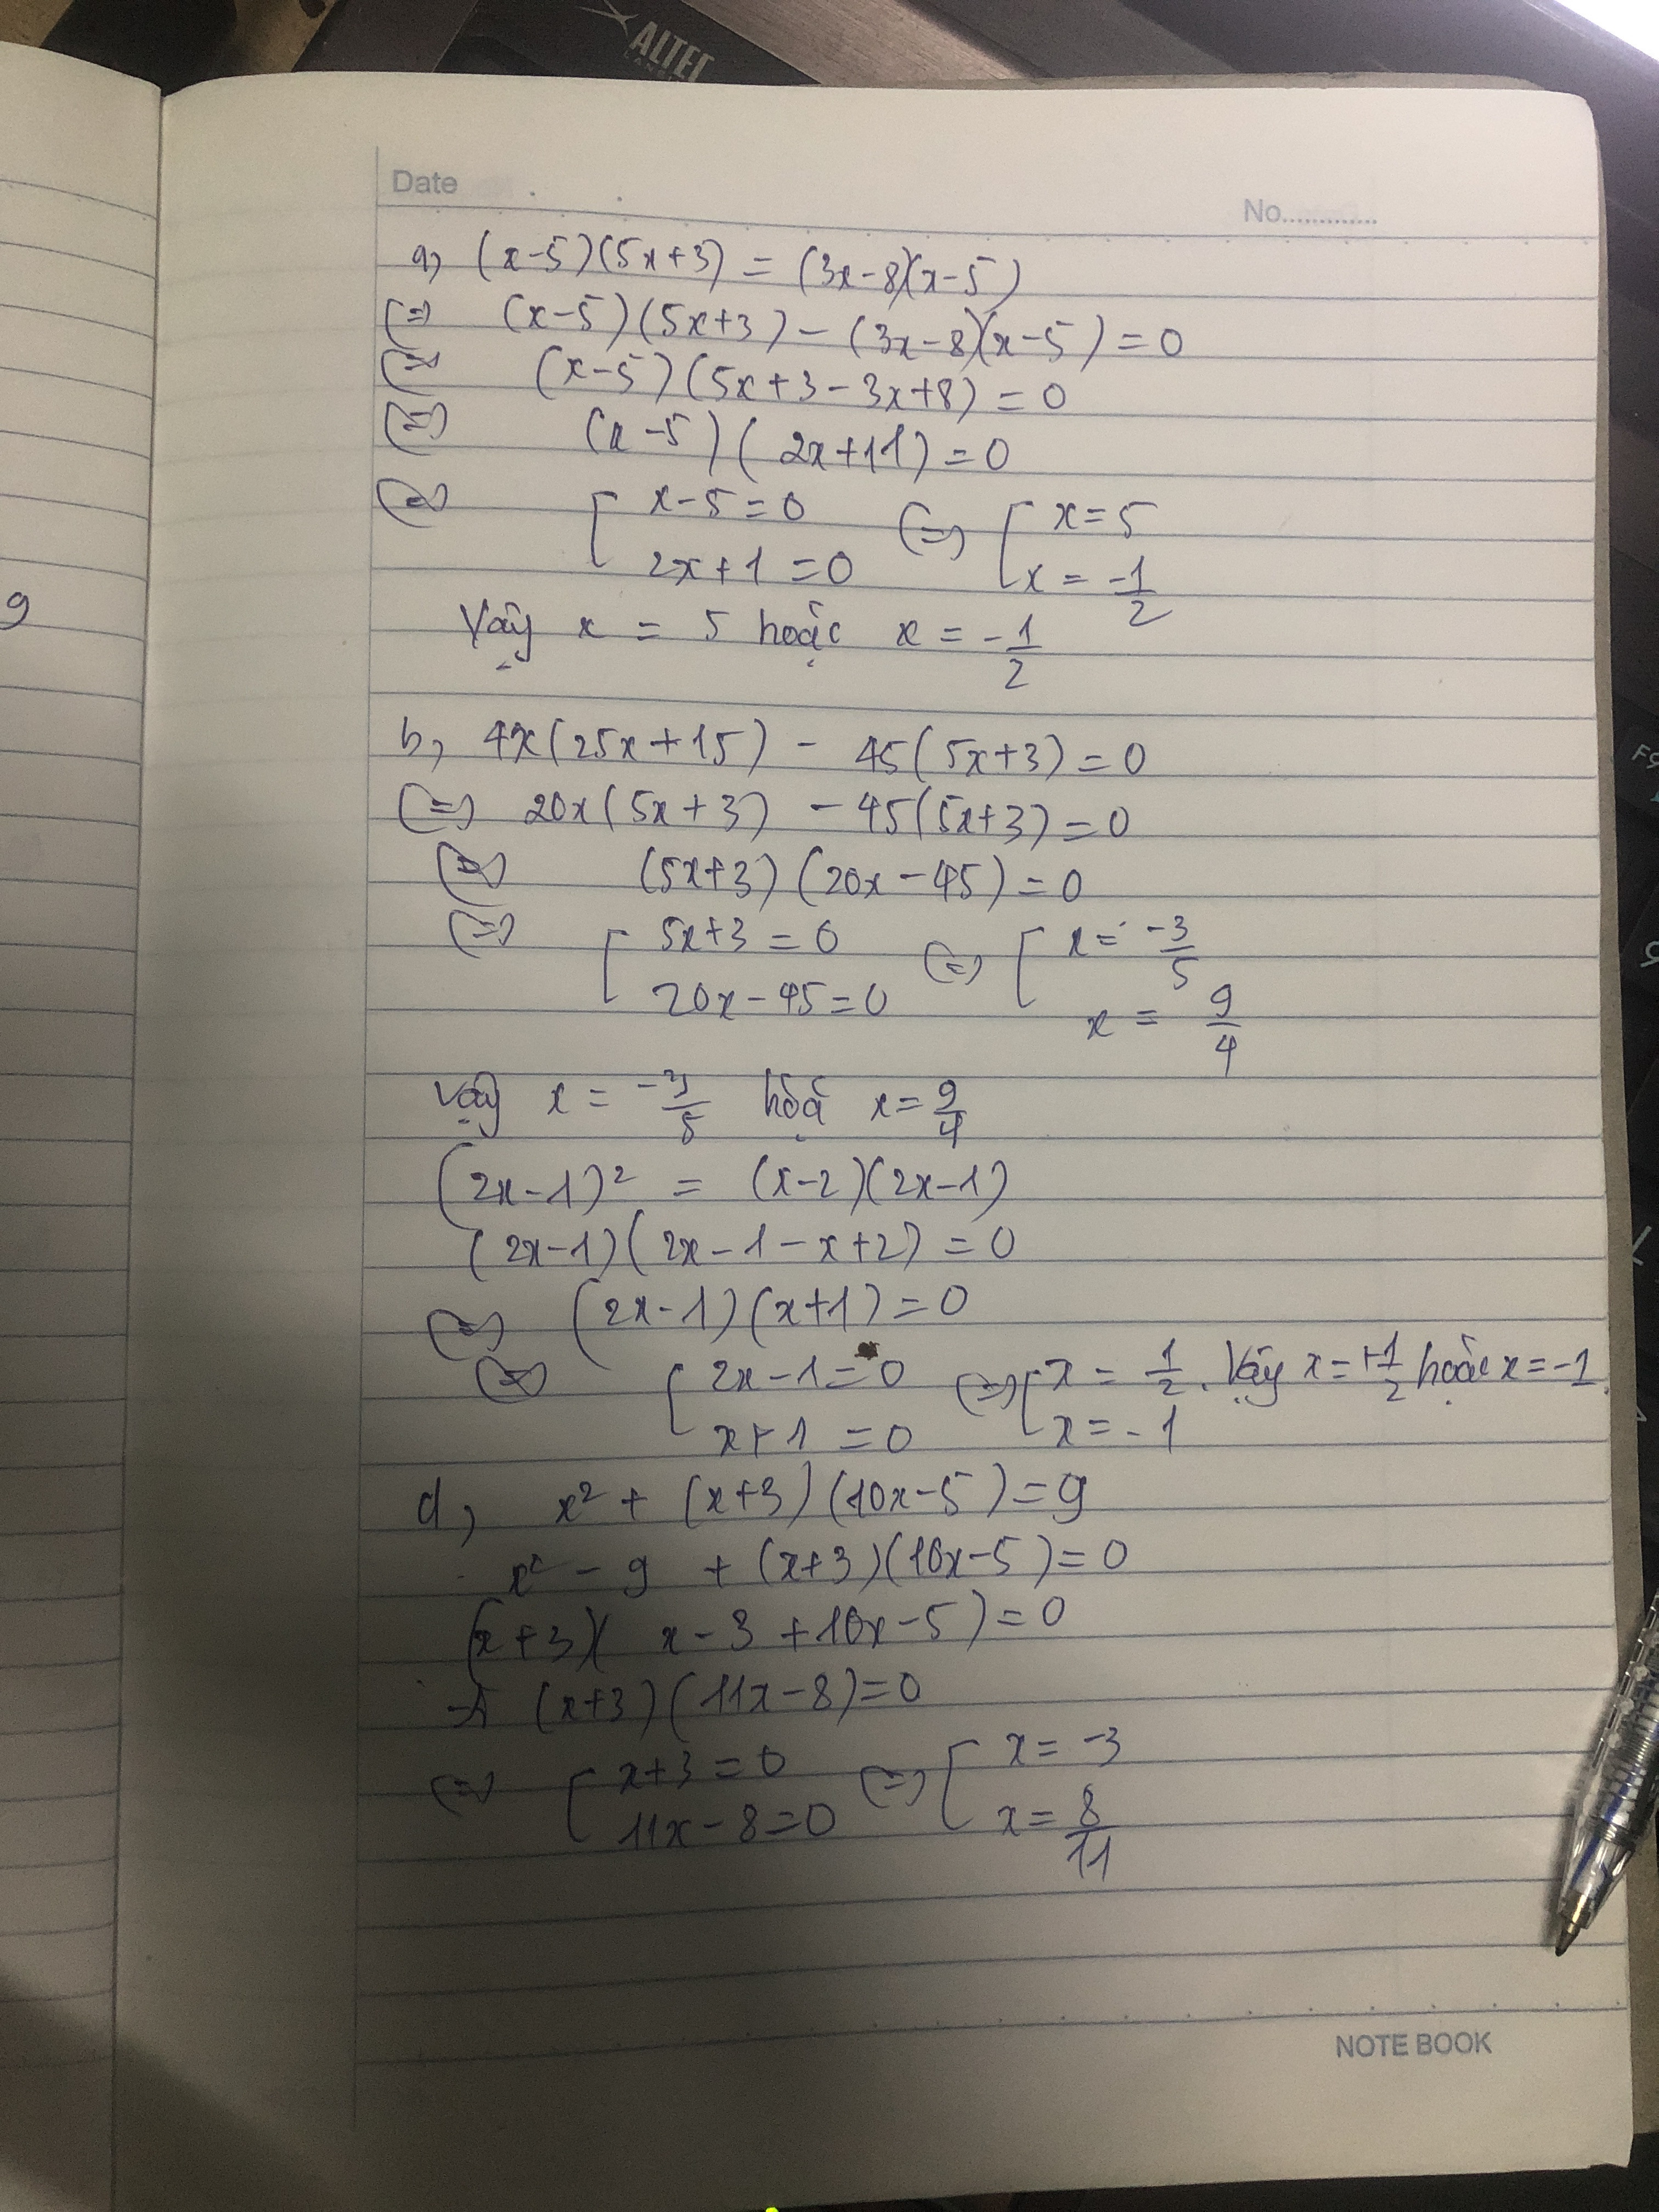 ALTEC
LANSING
Date
No.............
a, (x-5)(5x+3) = (3x-8)(x-5)
(=) (x-5)(5x+3) - (3x-8)(x-5) = 0
(=) (x-5)(5x+3-3x+8) = 0
(=) (x-5)(2x+11) = 0
(=) [ x-5=0 (=) [ x=5
2x+1=0 x = -1/2
Vậy x = 5 hoặc x = -1/2
b, 4x(25x+15) - 45(5x+3) = 0
(=) 20x(5x+3) - 45(5x+3) = 0
(=) (5x+3)(20x-45) = 0
(=) [ 5x+3=0 (=) [ x = -3/5
20x-45=0 x = 9/4
Vậy x = -3/5 hoặ x = 9/4
(2x-1)² = (x-2)(2x-1)
(2x-1)(2x-1-x+2) = 0
(=) (2x-1)(x+1) = 0
(=) [ 2x-1=0 (=) [ x = 1/2. Vậy x = +1/2 hoặc x = -1
x+1=0 x = -1
d, x² + (x+3)(10x-5) = 9
x² - 9 + (x+3)(10x-5) = 0
(x+3)(x-3+10x-5) = 0
(x+3)(11x-8) = 0
(=) [ x+3=0 (=) [ x = -3
11x-8=0 x = 8/11
NOTE BOOK
9
F9